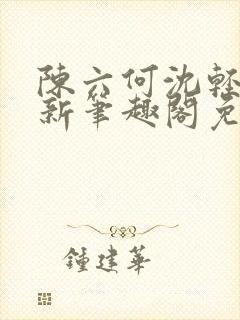 陳六何沈輕
新筆趣閣免
鍾建華